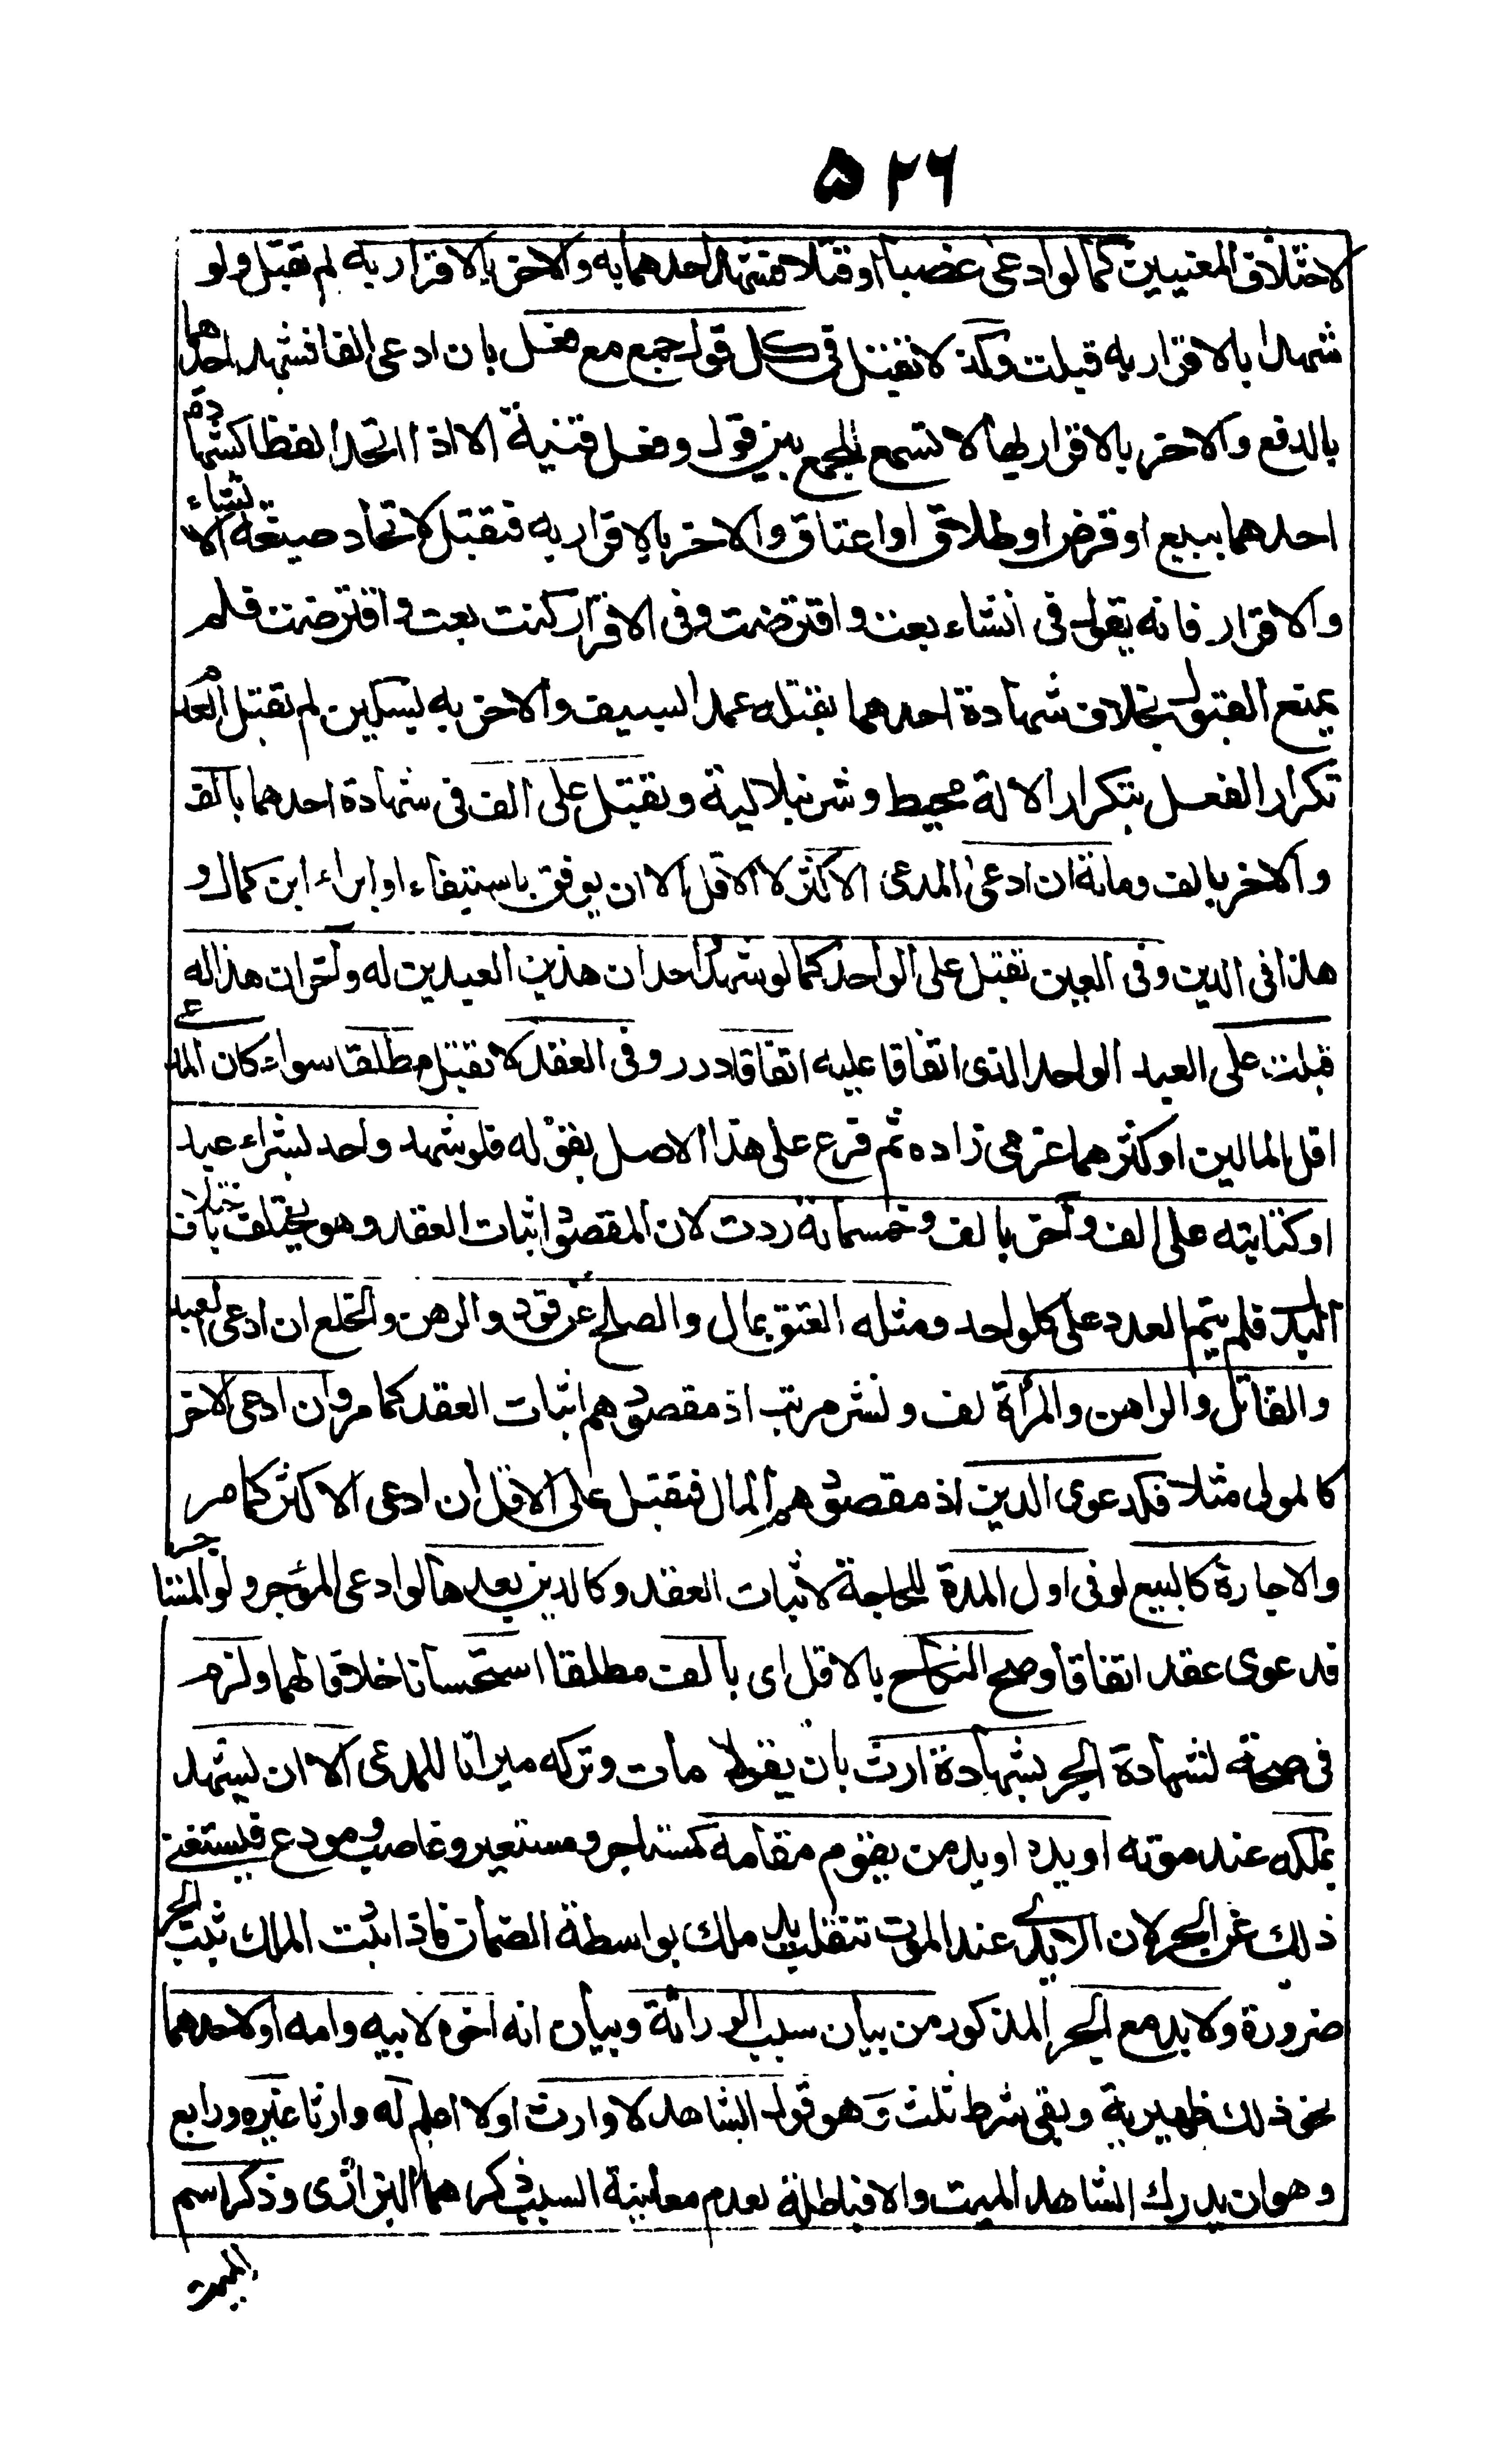 ۵۲۶
لاختلاف المعنيين كما لو ادعى غصبا او قتلا فشهد احدهما به والاخر بالاقرار به لم تقبل ولو
شهدا بالاقرار به قبلت وكذا لا تقبل فى كل قول جمع مع فعل بان ادعى الفا فشهد احدهما
بالدفع والاخر بالاقرار بها لا تسمع للجمع بين قول وفعل قنية الا اذا اتحدا لفظا كشهادة
احدهما ببيع او قرض او طلاق او اعتاق والاخر بالاقرار به فتقبل لاتحاد صيغة الانشاء
والاقرار فانه يقول فى انشاء بعت واقترضت وفى الاقرار كنت بعت واقترضت فلم
يمنع القبول بخلاف شهادة احدهما بقتله عمدا السيف والاخر به بسكين لم تقبل لعدم
تكرار الفعل بتكرار الالة محيط وشرنبلالية وتقبل على الف فى شهادة احدهما بالف
والاخر بالف ومائة ان ادعى المدعى الاكثر لا الاقل الا ان يوفق باستيفاء او ابراء ابن كمال و
هذا فى الدين وفى العين تقبل على الواحد كما لو شهد احد ان هذين العبدين له واخر ان هذا له
قبلت على العبد الواحد الذى اتفاقا عليه اتفاقا درر وفى العقد لا تقبل مطلقا سواء كان المدعى
اقل المالين او كثرهما عزمى زاده ثم فرع على هذا الاصل بقوله فلو شهد واحد بشراء عبد
او كتابته على الف واخر بالف وخمسمائة ردت لان المقصود اثبات العقد وهو يختلف باختلاف
البدل فلم يتم العدد على كل واحد ومثله العتق بمال والصلح عن قود والرهن والخلع ان ادعى العبد
والقاتل والراهن والمرأة لف ونشر مرتب اذ مقصودهم اثبات العقد كما مر وان ادعى الاخر
كالمولى مثلا فكدعوى الدين اذ مقصودهم المال فتقبل على الاقل ان ادعى الاكثر كما مر
والاجارة كالبيع لو فى اول المدة للحاجة لاثبات العقد وكالدين بعدها لو ادعى المؤجر ولو المستاجر
فدعوى عقد اتفاقا وصح النكاح بالاقل اى بالف مطلقا استحسانا خلافا لهما ولزم
فى صحة لشهادة الجر بشهادة ارث بان يقولا مات وتركه ميراثا للمدعى الا ان يشهد
بملكه عند موته او يده او يد من يقوم مقامه كمستاجر ومستعير وغاصب ومودع فيستغنى
ذلك عن الجر لان الايدى عند الموت تنقلب يد ملك بواسطة الضمان فاذا ثبت الملك ثبت الجر
ضرورة ولا بد مع الجر المذكور من بيان سبب الوراثة وبيان انه اخوه لابيه وامه او لاحدهما
نحو ذلك ظهيرية وبقى شرط ثلث وهو قول الشاهد لا وارث او لا اعلم له وارثا غيره ورابع
وهو ان يدرك الشاهد الميت والا فباطلة لعدم معاينة السبب ذكرهما البزازى وذكر اسم
الميت